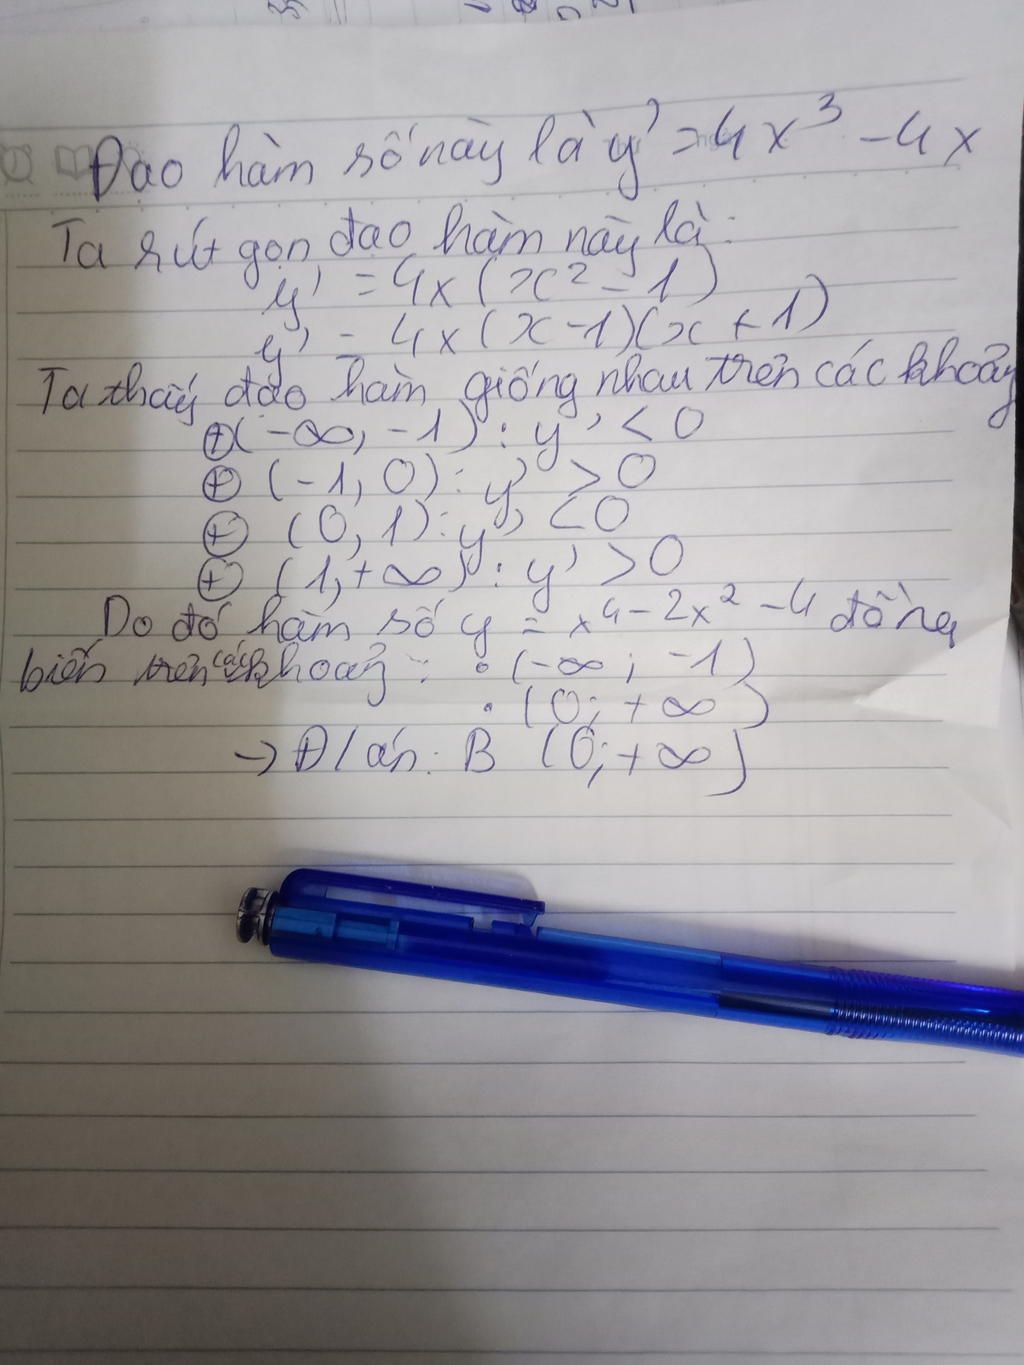 Đạo hàm số này là y' = 4x³ - 4x
Ta rút gọn đạo hàm này là:
y' = 4x(x² - 1)
y' = 4x(x - 1)(x + 1)
Ta thấy đạo hàm giống nhau trên các khoảng
⊕ (-∞, -1) : y' < 0
⊕ (-1, 0) : y' > 0
⊕ (0, 1) : y' < 0
⊕ (1, +∞) : y' > 0
Do đó hàm số y = x⁴ - 2x² - 4 đồng
biến trên các khoảng : • (-∞ ; -1)
• (0; +∞)
→ Đ/án: B (0; +∞)